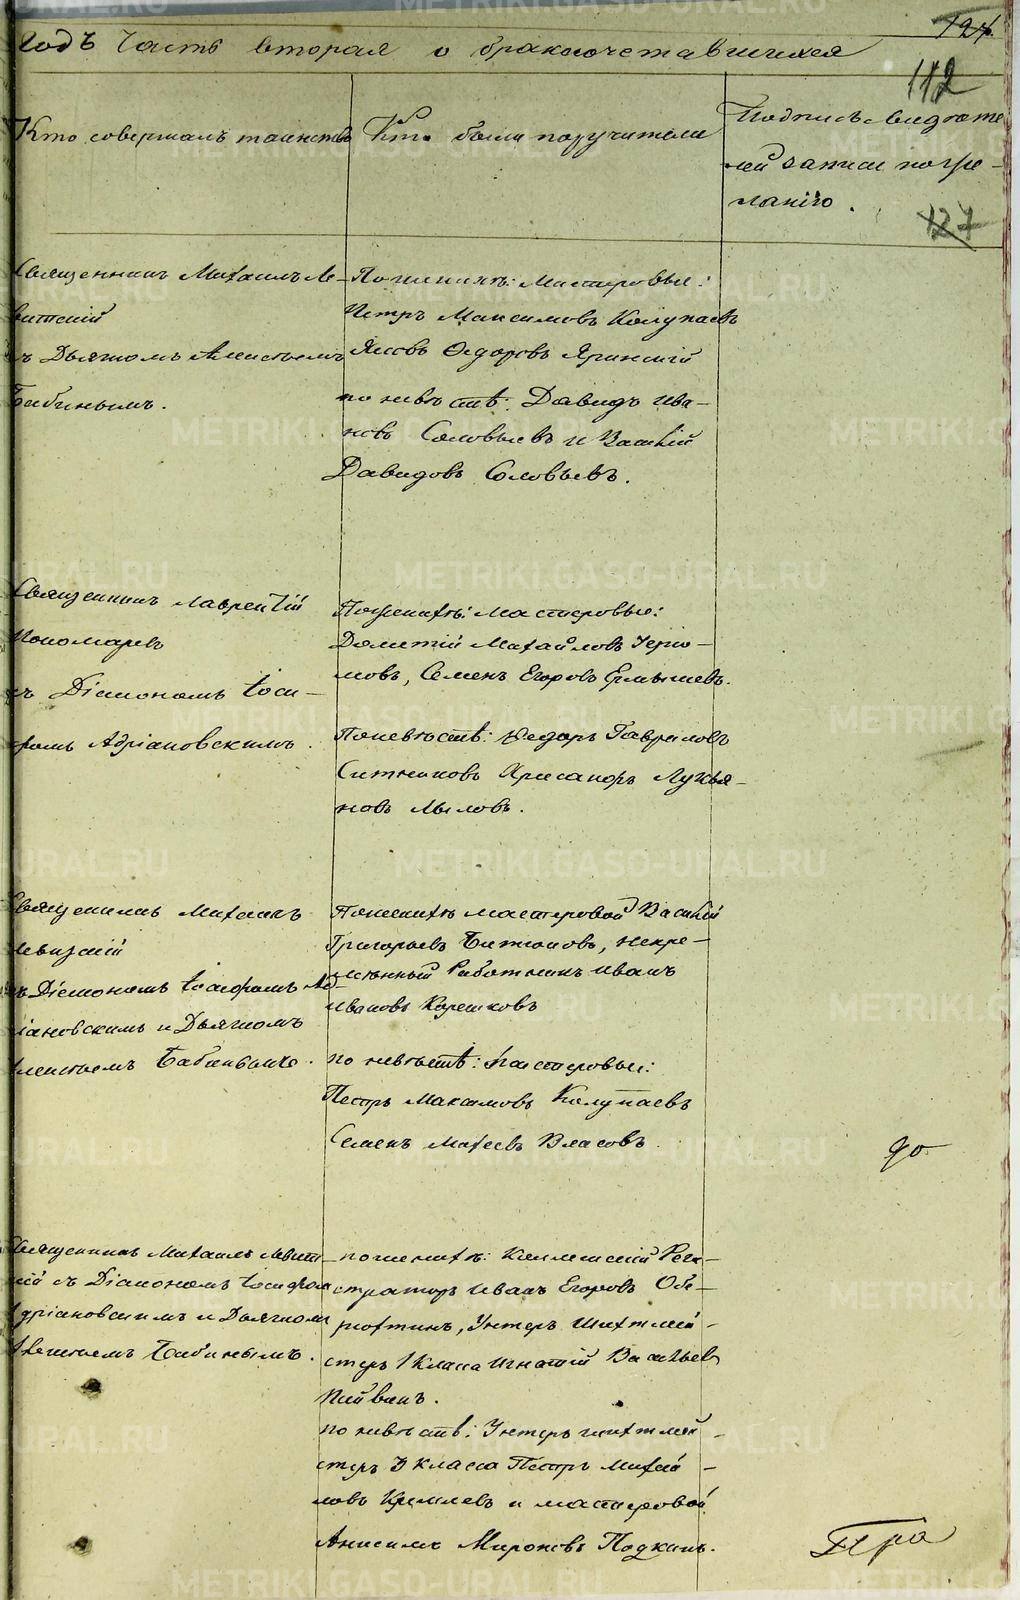 124.
годъ Часть вторая о бракосочетавшихся
112
Кто совершалъ таинство
Кто были поручители
Подпись свидѣте
лей записи по же-
ланію.
127
Священникъ Михаилъ Ле-
витскій
съ Дьячкомъ Алексѣемъ
Бабинымъ.
По женихѣ: мастеровые:
Петръ Максимовъ Колупаевъ
Яковъ Ѳедоровъ
по невѣстѣ: Давидъ Ива-
новъ Соловьевъ и Василій
Давидовъ Соловьевъ.
Священникъ Лаврентій
Пономаревъ
съ Діакономъ Іоси-
фомъ Адріановскимъ.
По женихѣ: мастеровые:
Дометій Михайловъ
Семенъ Егоровъ
По невѣстѣ: Ѳедоръ Гавриловъ
Ситниковъ Хрисанфъ Лукья-
новъ Мыловъ.
Священникъ Михаилъ
Левитскій
съ Діакономъ Іосифомъ Ад-
ріановскимъ и Дьячкомъ
Алексѣемъ Бабинымъ.
По женихѣ мастеровой Василій
Григорьевъ непре-
мѣнный Работникъ Иванъ
Ивановъ Корешковъ
по невѣстѣ: Мастеровые:
Петръ Максимовъ Колупаевъ
Семенъ Власовъ.
до
Священникъ Михаилъ Левит-
скій съ Діакономъ Іосифом
Адріановскимъ и Дьячкомъ
Алексѣемъ Бабинымъ.
по женихѣ: Коллежскій Реги-
страторъ Иванъ Егоровъ
Унтеръ Шихтмей-
стеръ 1 Класа Игнатій Васильев
по невѣстѣ: Унтеръ шихтмей-
стеръ 3 класса Петръ Михай-
ловъ Кремлевъ и мастеровой
Анисимъ Мироновъ Подкинъ.
Пра
METRIKI.GASO-URAL.RU